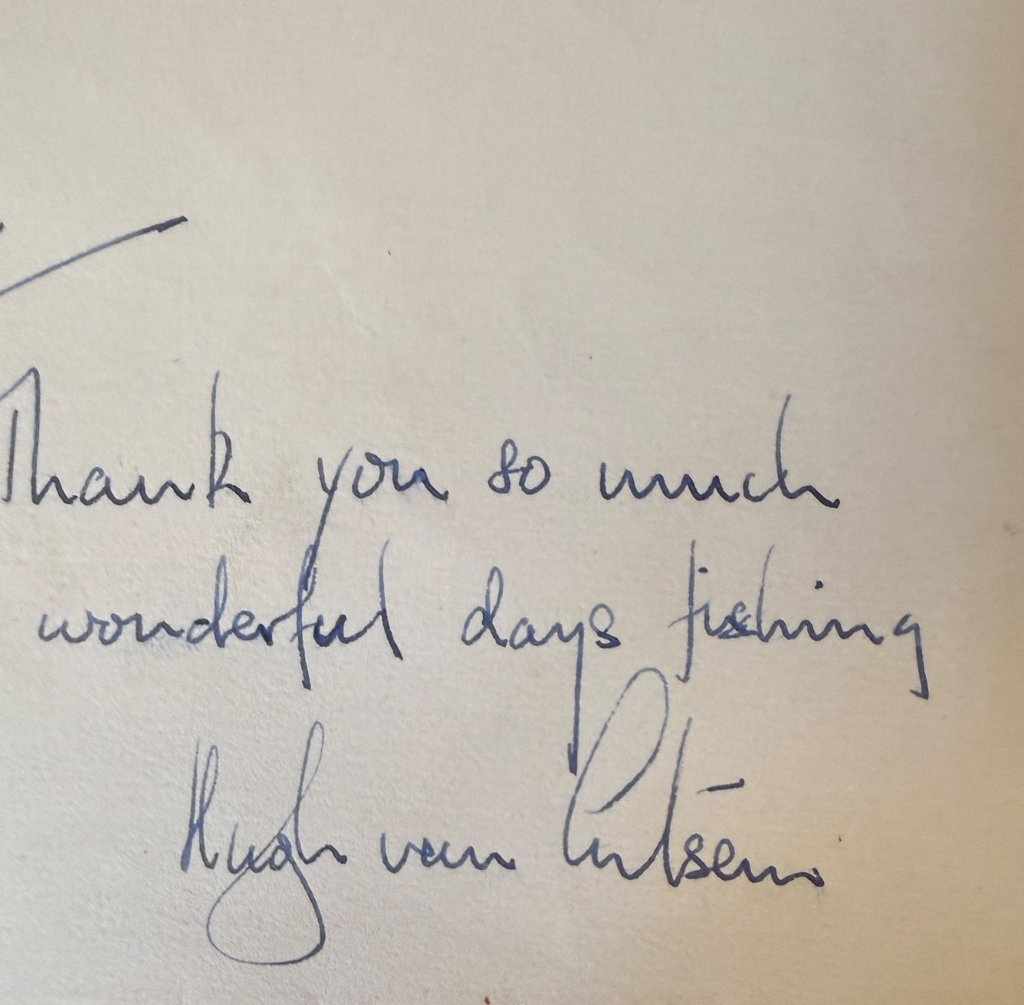 Thank you so much
wonderful days fishing
Hugh van Cutsem